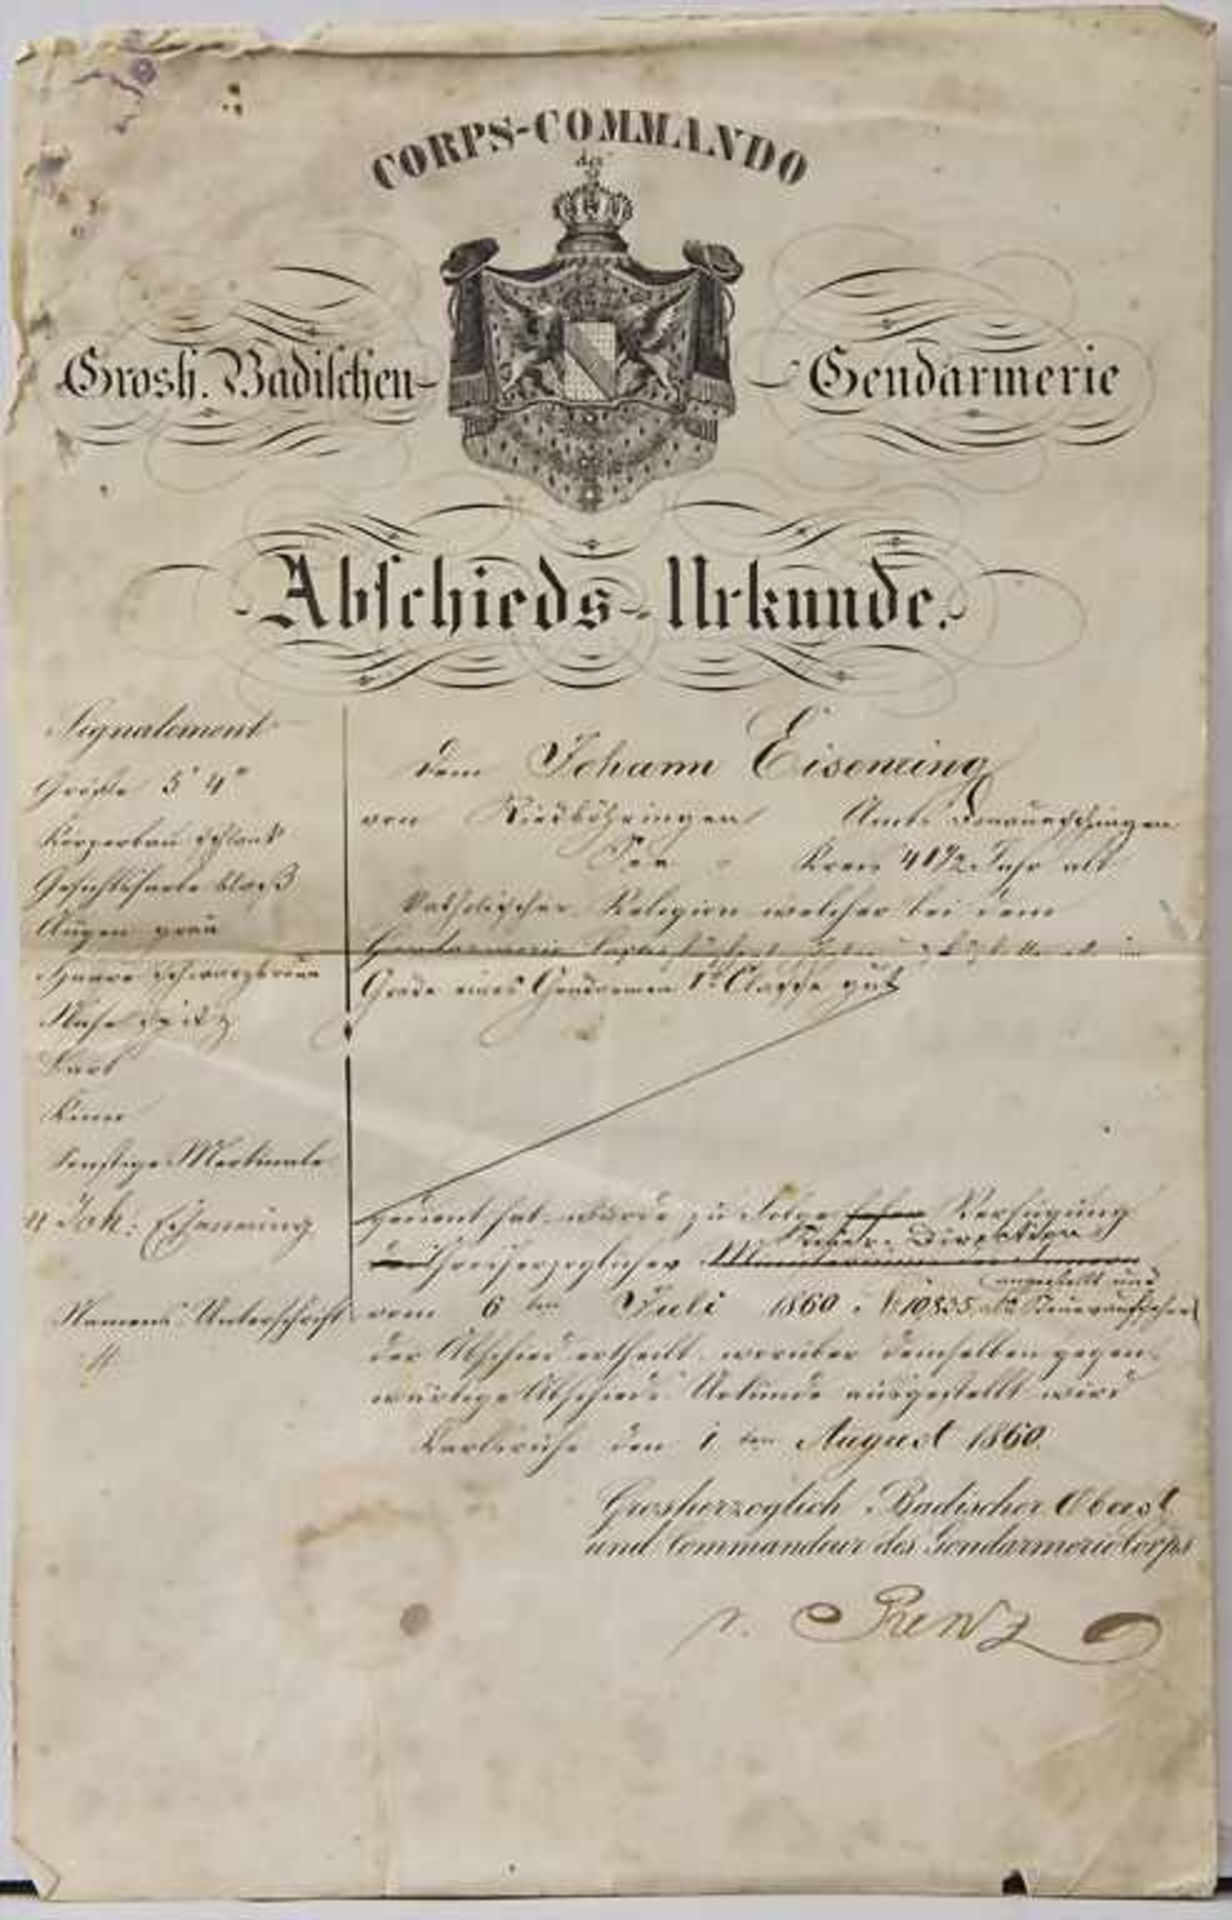 CORPS-COMMANDO
der
Grosh. Badischen
Gendarmerie
Abschieds-Urkunde.
Signalement
Größe 5' 4"
Körperbau schlank
Gesichtsfarbe blaß
Augen grau
Haare schwarzbraun
Nase spitz
Bart
Kinn
Sonstige Merkmale
Joh: Eisenming
Namens Unterschrift
dem Johann
von Riedböhringen Amts Donaueschingen
See Kreis 41 1/2 Jahr alt
katholischer Religion welcher bei dem
Gendarmerie Corps
Grade eines Gendarmen 1r Classe gut
gedient hat wurde zu Folge hohen Verfügung
Grosherzoglicher Ministeriums
Steuer-Direktion
angestellt und
vom 6 ten Juli 1860 No 10,835 als Steueraufseher
der Abschied ertheilt, worüber demselben gegen-
wärtige Abschieds Urkunde ausgestellt wird
Karlsruhe den 1 ten August 1860
Grosherzoglich Badischer Oberst
und Commandeur des Gendarmerie Corps
v. Renz